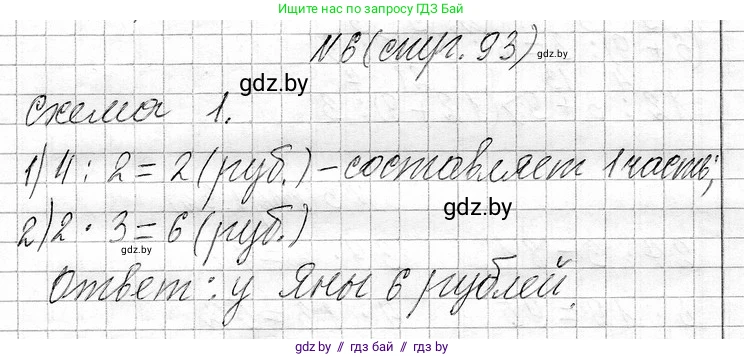 Ищи нас по запросу ГДЗ Бай
№6 (стр. 93)
gdz.by
gdz.by
Схема 1.
1) 4 : 2 = 2 (руб.) – составляет 1 часть;
gdz.by
2) 2 · 3 = 6 (руб.)
gdz.by
Ответ: у Яны 6 рублей.
gdz.by // гдз бай // gdz.by